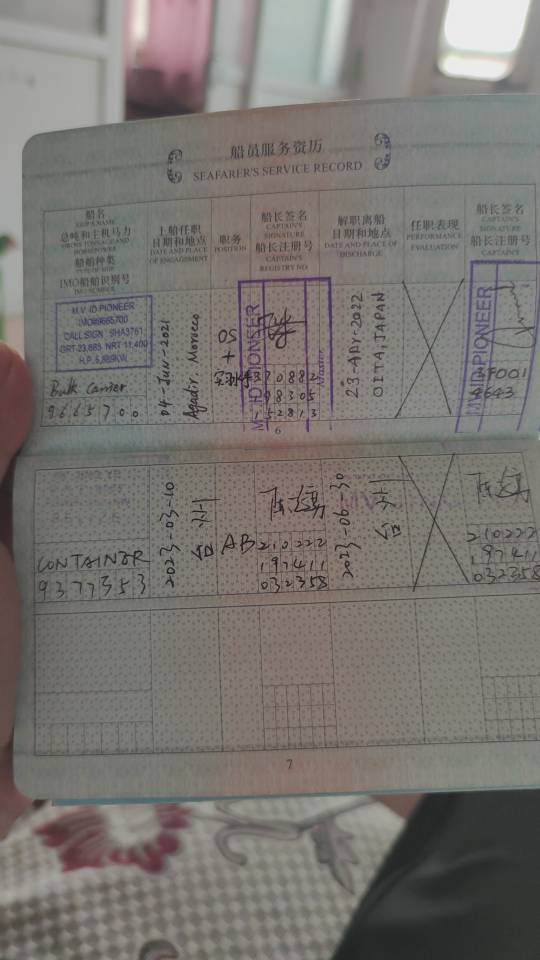 船员服务资历
SEAFARER'S SERVICE RECORD
船名
SHIP'S NAME
总吨和主机马力
GROSS TONNAGE AND
HORSEPOWER
船舶种类
TYPE OF SHIP
IMO船舶识别号
IMO NUMBER
上船任职
日期和地点
DATE AND PLACE
OF ENGAGEMENT
职务
POSITION
船长签名
CAPTAIN'S
SIGNATURE
船长注册号
CAPTAIN'S
REGISTRY NO.
解职离船
日期和地点
DATE AND PLACE OF
DISCHARGE
任职表现
PERFORMANCE
EVALUATION
船长签名
CAPTAIN'S
SIGNATURE
船长注册号
CAPTAIN'S
M.V. ID PIONEER
IMO#9665700
CALL SIGN : 3HA3761
GRT-23,863 NRT-11,400
H.P. 5,889KW
Bulk Carrier
9665700
04-Jun-2021
Agadir, Morocco
OS
+
M.V. ID PIONEER
370882
198305
152813
23-Apr-2022
OITA, JAPAN
M.V. ID PIONEER
37001
4643
6
CONTAINER
9377353
2023-03-10
AB
210222
197411
032358
2023-06-30
210222
197411
032358
7